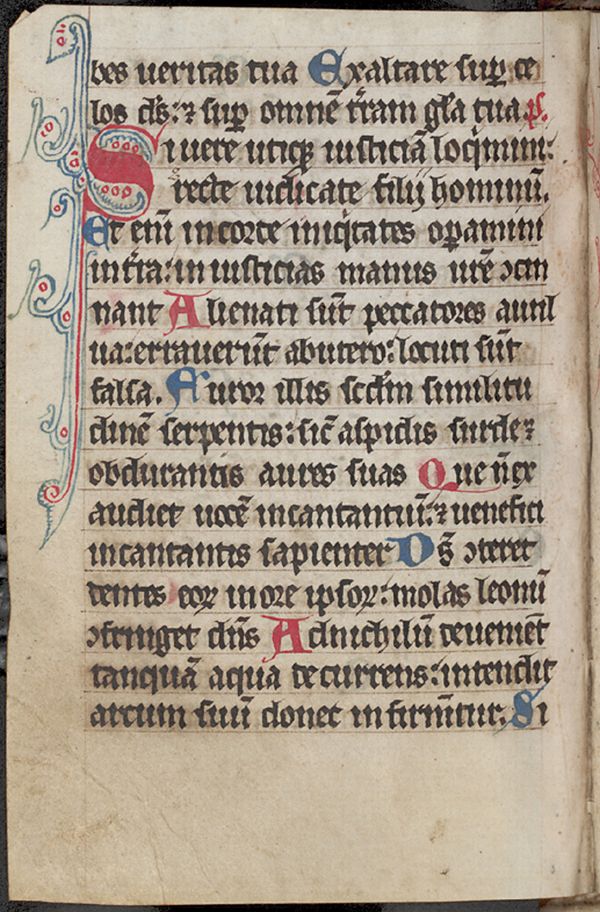 bes ueritas tua Exaltare sup̲ ce
los ds̅: ⁊ sup̲ omnē tr̄am gl̄a tua p̅s.
Si uere utiq̲ iusticiā loq̍mini:
recte iudicate filij hominū.
Et eni̅ in corde iniq̍tates op̲amini
in tr̄a: in iusticias manus ur̄e ↄcin
nant Alienati sūt peccatores auul
ua: errauerūt abutero: locuti sūt
falsa. Furor illis scd̅m similitu
dinē serpentis: sic̅ aspidis surde ⁊
obdurantis aures suas Que n̅ ex
audiet uocē incantantiu̅: ⁊ uenefici
incantantis sapienter Ds̅ ↄteret
dentes eoꝝ in ore ipsoꝝ: molas leonū
ↄfringet dn̄s Ad nichilū deuenient̄
tanquā aqua decurrens: intendit
arcum suū donec infirmn̄tur. Si